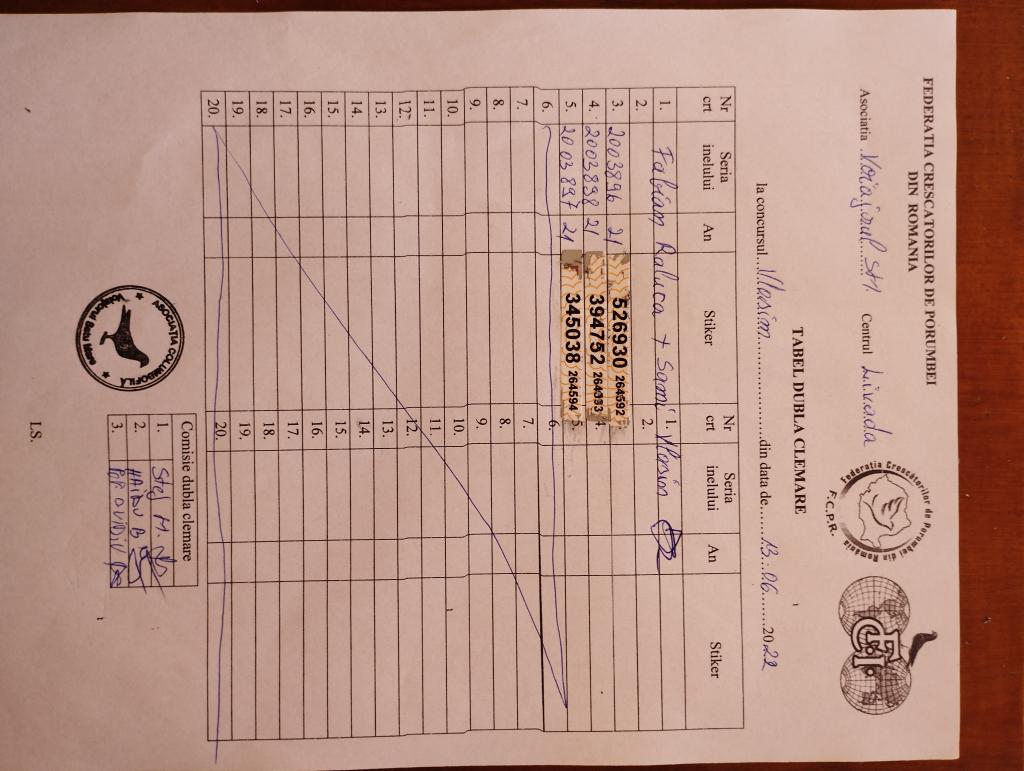 FEDERATIA CRESCATORILOR DE PORUMBEI
DIN ROMANIA
Asociatia Voiajorul SM Centrul Livada
Federatia Crescătorilor de Porumbei din România
F.C.P.R.
F.C.I.
TABEL DUBLA CLEMARE
la concursul...Vlasim...din data de...13.06...2022
Nr crt Seria inelului An Stiker Nr crt Seria inelului An Stiker
1. Fabian Raluca + Sami Vlasim 1.
2. 2.
3. 2003896 21 526930 264592
4. 2003898 21 394752 264593 4.
5. 2003897 21 345038 264594 5.
6. 6.
7. 7.
8. 8.
9. 9.
10. 10.
11. 11.
12. 12.
13. 13.
14. 14.
15. 15.
16. 16.
17. 17.
18. 18.
19. 19.
20. 20.
ASOCIATIA COLUMBOFILĂ
Voiajorul Satu Mare
Comisie dubla clemare
1. Stef M.
2. HAIDU B
3. POP OVIDIU
LS.